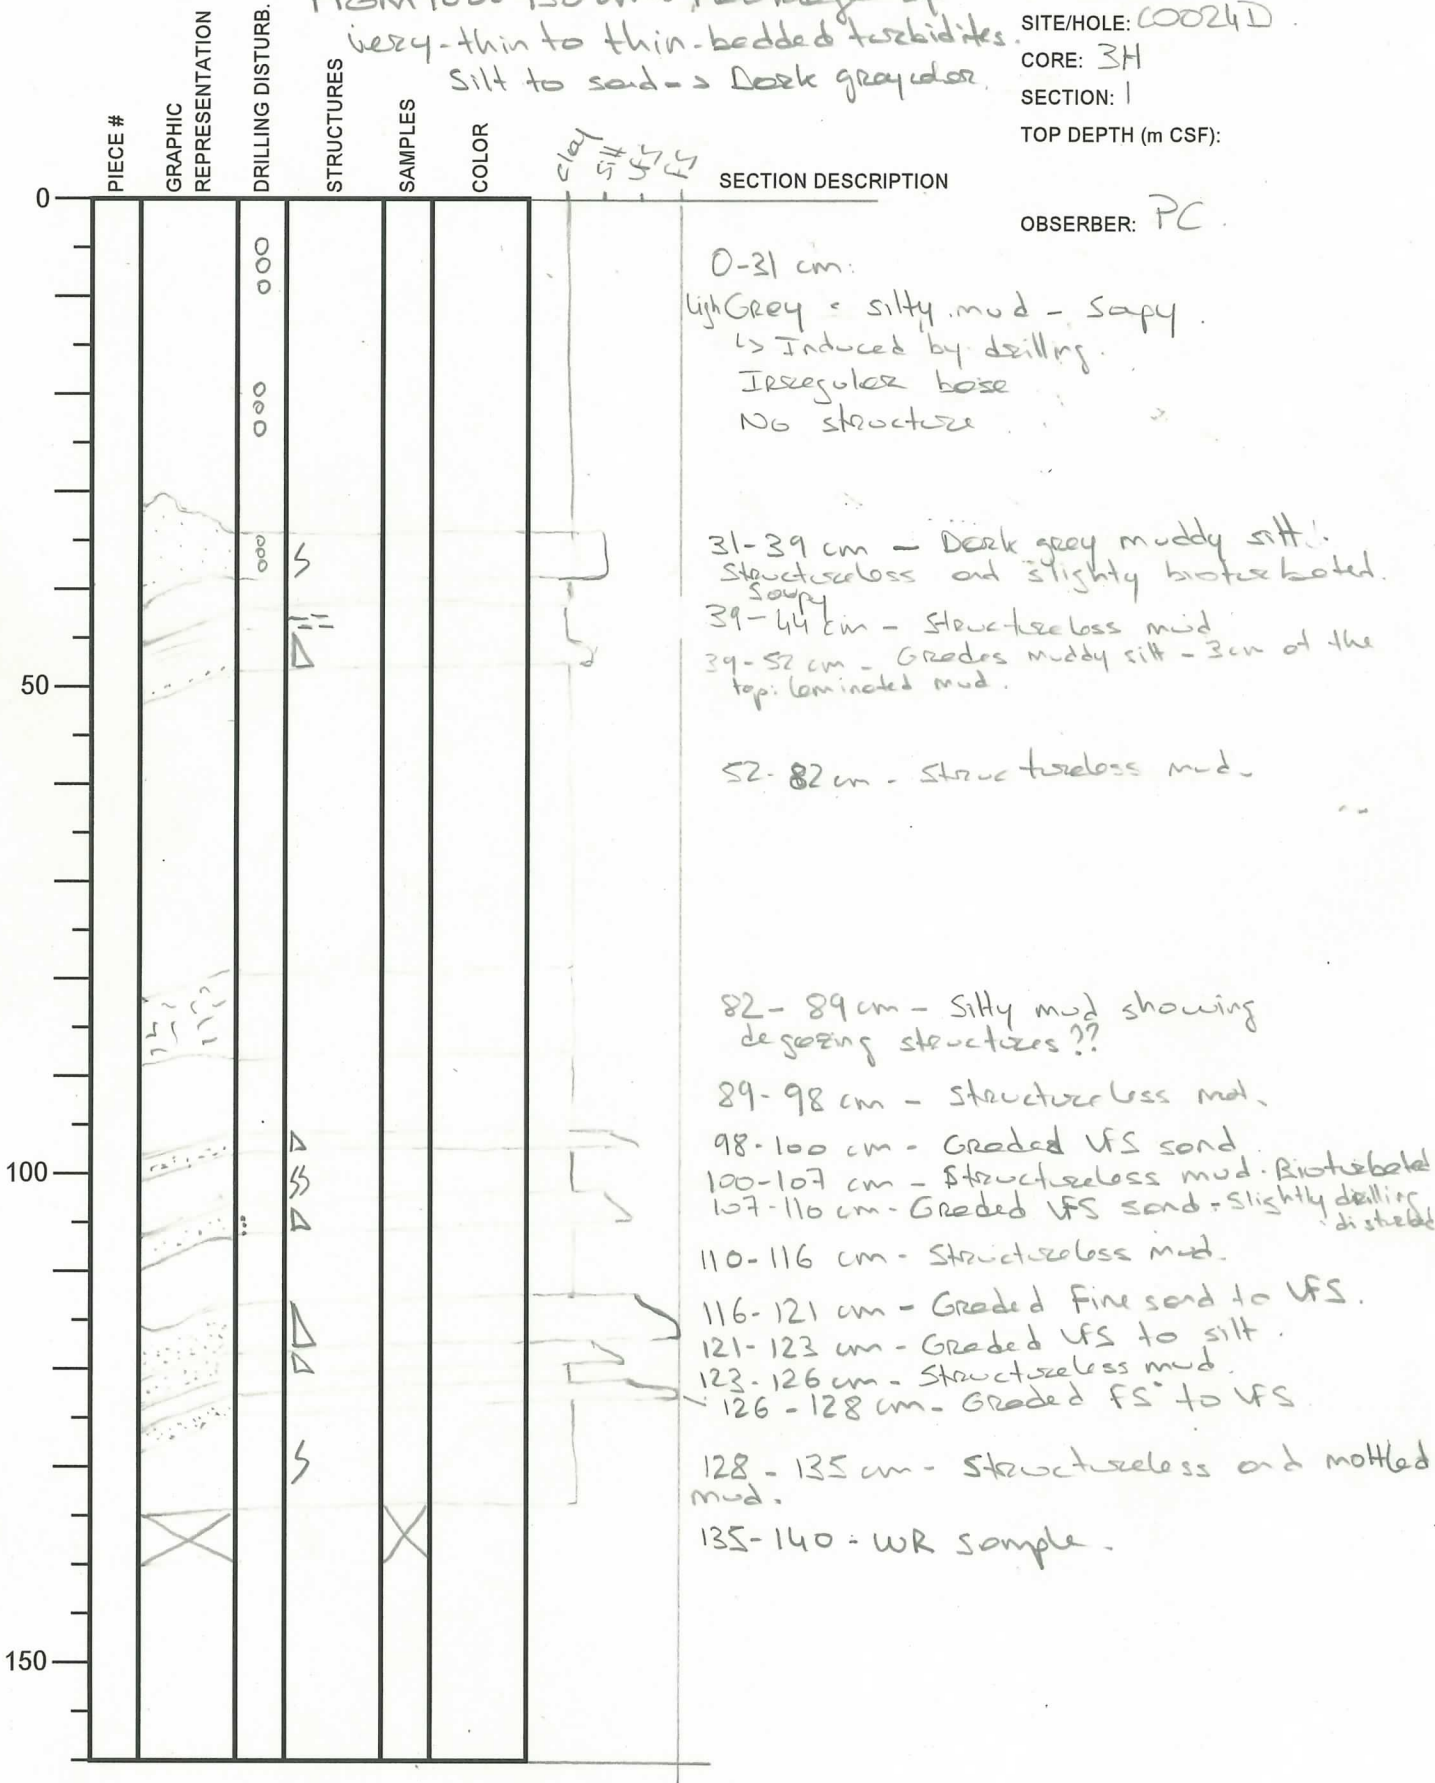 very-thin to thin-bedded turbidites.
Silt to sand -> Dark gray color.
SITE/HOLE: C0024D
CORE: 3H
SECTION: 1
TOP DEPTH (m CSF):
OBSERBER: PC
PIECE #
GRAPHIC REPRESENTATION
DRILLING DISTURB.
STRUCTURES
SAMPLES
COLOR
clay
silt
VFS
FS
SECTION DESCRIPTION
0
50
100
150
0-31 cm:
Ligh Grey silty mud - Soapy.
↳ Induced by drilling.
Irregular base
No structure
31-39 cm - Dark grey muddy silt.
Structureless and slighty bioturbated.
Soupy
39-44 cm - Structureless mud
39-52 cm - Grades muddy silt - 3cm at the
top: laminated mud.
52-82 cm - Structureless mud.
82-89 cm - Silty mud showing
degazing structures??
89-98 cm - Structureless mud.
98-100 cm - Graded VFS sand
100-107 cm - Structureless mud. Bioturbated
107-110 cm - Graded VFS sand - Slightly drilling
disturbed
110-116 cm - Structureless mud.
116-121 cm - Graded Fine sand to VFS.
121-123 cm - Graded VFS to silt.
123-126 cm - Structureless mud.
126-128 cm - Graded FS to VFS
128-135 cm - Structureless and mottled
mud.
135-140 - WR sample.